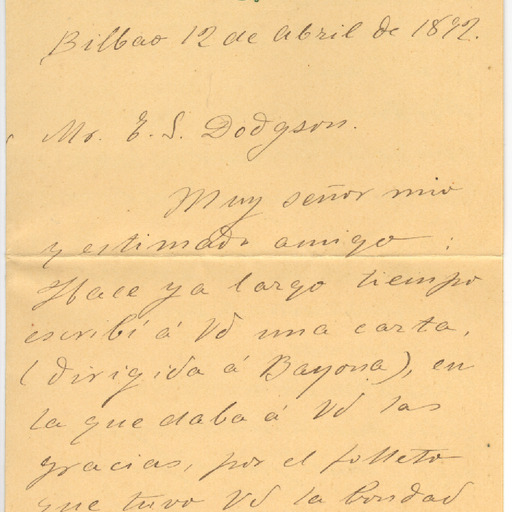 Bilbao 12 de Abril de 1892.
Mr. E. S. Dodgson.
Muy señor mio
y estimado amigo:
Hace ya largo tiempo
escribí á Vd una carta,
(dirigida á Bayona), en
la que daba á Vd las
gracias, por el folleto
que tuvo Vd la bondad